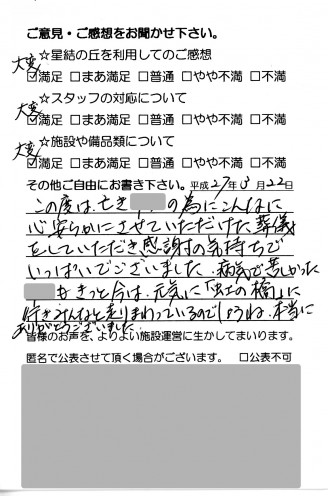 ご意見・ご感想をお聞かせ下さい。
☆星結の丘を利用してのご感想
大変
☑満足 □まあ満足 □普通 □やや不満 □不満
☆スタッフの対応について
大変
☑満足 □まあ満足 □普通 □やや不満 □不満
☆施設や備品類について
大変
☑満足 □まあ満足 □普通 □やや不満 □不満
その他ご自由にお書き下さい。平成27年 月22日
この度は、亡き の為にこんなに
心安らかにさせていただけた葬儀
をしていただき感謝の気持ちで
いっぱいでございました。病気で苦しかった
もきっと今は、元気に「虹の橋」に
行きみんなと走りまわっているのでしょうね。本当に
ありがとうございました。
皆様のお声を、よりよい施設運営に生かしてまいります。
匿名で公表させて頂く場合がございます。 □公表不可